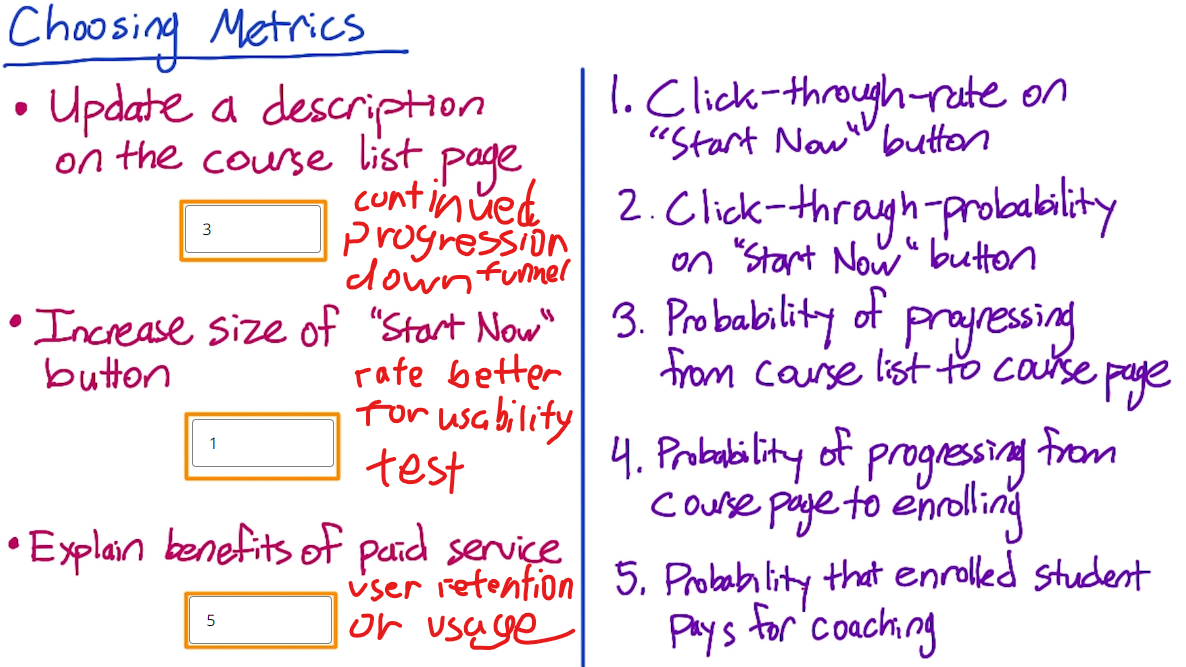 Choosing Metrics
• Update a description
on the course list page
3
continued
progression
down funnel
• Increase size of "Start Now"
button
rate better
for usability
test
1
• Explain benefits of paid service
user retention
or usage
5
1. Click-through-rate on
"Start Now" button
2. Click-through-probability
on "Start Now" button
3. Probability of progressing
from course list to course page
4. Probability of progressing from
course page to enrolling
5. Probability that enrolled student
pays for coaching